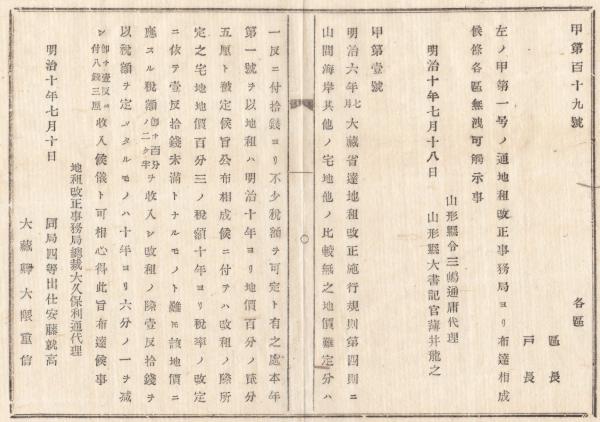 甲第百十九號
各區
區長
戸長
左ノ甲第一号ノ通地租改正事務局ヨリ布達相成
候條各區無洩可觸示事
山形縣令三嶋通庸代理
明治十年七月十八日 山形縣大書記官薄井龍之
甲第壹號
明治六年七月大藏省達地租改正施行規則第四則ニ
山間海岸其他ノ宅地他ノ比較無之地價難定分ハ
一反ニ付拾錢ヨリ不少税額ヲ可定ト有之處本年
第一號ヲ以地租ハ明治十年ヨリ地價百分ノ貳分
五厘ト被定候旨公布相成候ニ付テハ改租ノ際所
定之宅地地價百分三ノ税額十年ヨリ税率ノ改定
ニ依テ壹反拾錢未満トナルモノト雖𪜈該地價ニ
應スル税額ノ即チ百分ノ二ケ半ヲ收入シ改租ノ際壹反拾錢ヲ
以税額ヲ定メタルモノハ十年ヨリ六分ノ一ヲ減
シ即チ壹反ニ付八錢三厘收入候儀ト可相心得此旨布達候事
地租改正事務局總裁大久保利通代理
明治十年七月十日 同局四等出仕安藤就高
大藏卿大隈重信